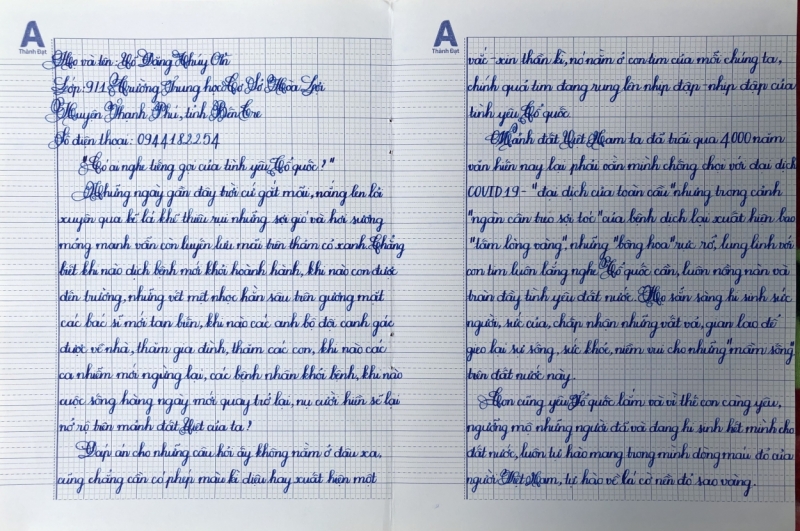 A
Thành Đạt
Họ và tên: Hồ Đăng Thúy Ơn
Lớp: 9/1 Trường Trung học Cơ Sở Hòa Lợi
Huyện Thạnh Phú, tỉnh Bến Tre
Số điện thoại: 0944182254
"Có ai nghe tiếng gọi của tình yêu Tổ quốc?"
Những ngày gần đây trời cứ gắt mãi, nắng len lỏi
xuyên qua kẽ lá khẽ thiêu rụi những sợi gió và hơi sương
mỏng manh vẫn còn luyến lưu mãi trên thảm cỏ xanh. Chẳng
biết khi nào dịch bệnh mới khỏi hoành hành, khi nào con được
đến trường, những vết mệt nhọc hằn sâu trên gương mặt
các bác sĩ mới tan biến, khi nào các anh bộ đội canh gác
được về nhà, thăm gia đình, thăm các con, khi nào các
ca nhiễm mới ngừng lại, các bệnh nhân khỏi bệnh, khi nào
cuộc sống hàng ngày mới quay trở lại, nụ cười hiền sẽ lại
nở rộ trên mảnh đất Việt của ta?
Đáp án cho những câu hỏi ấy không nằm ở đâu xa,
cũng chẳng cần có phép màu kì diệu hay xuất hiện một
A
Thành Đạt
vắc-xin thần kì, nó nằm ở con tim của mỗi chúng ta,
chính quả tim đang rung lên nhịp đập - nhịp đập của
tình yêu Tổ quốc.
Mảnh đất Việt Nam ta đã trải qua 4000 năm
văn hiến nay lại phải vẫn mình chống chọi với đại dịch
COVID19 - "đại dịch của toàn cầu" nhưng trong cảnh
"ngàn cân treo sợi tóc" của bệnh dịch lại xuất hiện bao
"tấm lòng vàng", những "bông hoa" rực rỡ, lung linh với
con tim luôn lắng nghe Tổ quốc cần, luôn nồng nàn và
tràn đầy tình yêu đất nước. Họ sẵn sàng hi sinh sức
người, sức của, chấp nhận những vất vả, gian lao để
gieo lại sự sống, sức khỏe, niềm vui cho những "mầm sống"
trên đất nước này.
Con cũng yêu Tổ quốc lắm và vì thế con càng yêu,
ngưỡng mộ những người đã và đang hi sinh hết mình cho
đất nước, luôn tự hào mang trong mình dòng máu đỏ của
người Việt Nam, tự hào về lá cờ nền đỏ sao vàng.